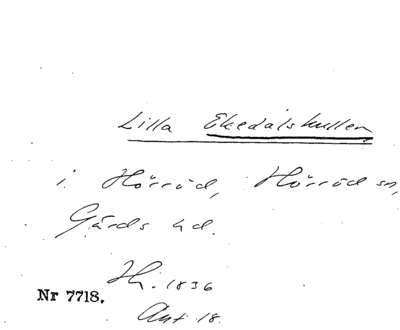 Lilla Ekedalskullen
i Hörröd, Hörröd sn,
Gärds hd.
Hi. 1836
Nr 7718.
Ant. 18.